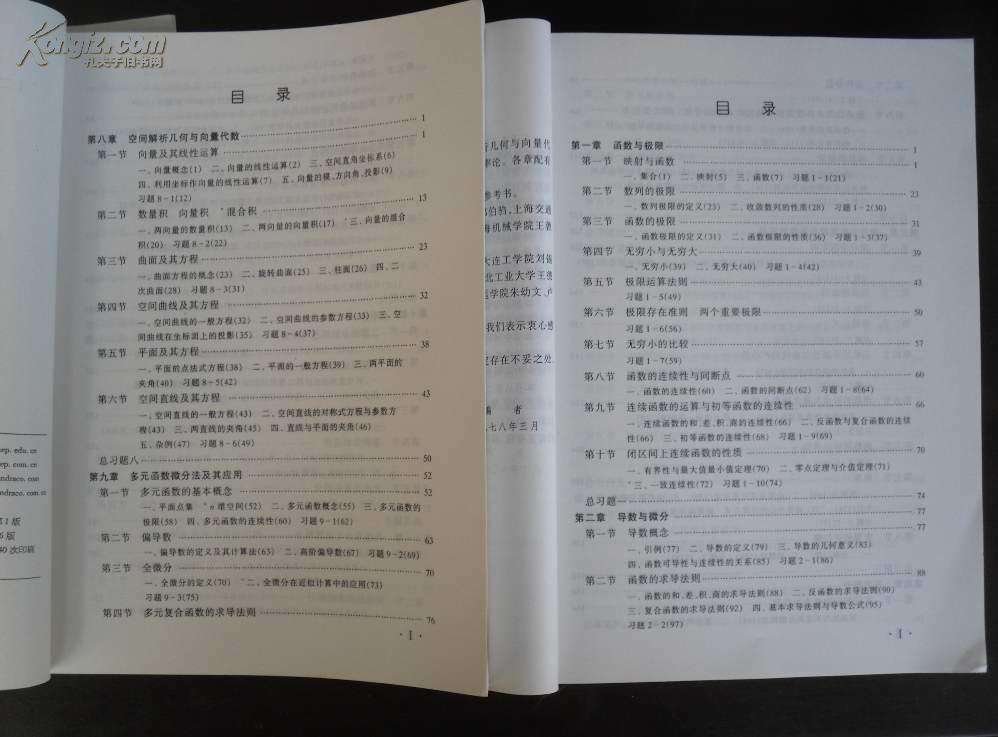 Kongfz.com
孔夫子旧书网
目 录
第八章 空间解析几何与向量代数 1
第一节 向量及其线性运算 1
一、向量概念(1) 二、向量的线性运算(2) 三、空间直角坐标系(6)
四、利用坐标作向量的线性运算(7) 五、向量的模、方向角、投影(9)
习题8-1(12)
第二节 数量积 向量积 *混合积 13
一、两向量的数量积(13) 二、两向量的向量积(17) *三、向量的混合
积(20) 习题8-2(22)
第三节 曲面及其方程 23
一、曲面方程的概念(23) 二、旋转曲面(25) 三、柱面(26) 四、二
次曲面(28) 习题8-3(31)
第四节 空间曲线及其方程 32
一、空间曲线的一般方程(32) 二、空间曲线的参数方程(33) 三、空
间曲线在坐标面上的投影(35) 习题8-4(37)
第五节 平面及其方程 38
一、平面的点法式方程(38) 二、平面的一般方程(39) 三、两平面的
夹角(40) 习题8-5(42)
第六节 空间直线及其方程 43
一、空间直线的一般方程(43) 二、空间直线的对称式方程与参数方
程(43) 三、两直线的夹角(45) 四、直线与平面的夹角(46)
五、杂例(47) 习题8-6(49)
总习题八 50
第九章 多元函数微分法及其应用 52
第一节 多元函数的基本概念 52
一、平面点集 *n维空间(52) 二、多元函数概念(55) 三、多元函数的
极限(58) 四、多元函数的连续性(60) 习题9-1(62)
第二节 偏导数 63
一、偏导数的定义及其计算法(63) 二、高阶偏导数(67) 习题9-2(69)
第三节 全微分 70
一、全微分的定义(70) *二、全微分在近似计算中的应用(73)
习题9-3(75)
第四节 多元复合函数的求导法则 76
·Ⅰ·
几何与向量代
各章配有
参考书。
上海交通
海机械学院王
大连工学院刘
北工业大学王
学院朱幼文
我们表示衷心感
存在不妥之处
编 者
七八年三月
edu.cn
com.cn
ndraco.com
ndraco.com.cn
第1版
版
40次印刷
目 录
第一章 函数与极限 1
第一节 映射与函数 1
一、集合(1) 二、映射(5) 三、函数(7) 习题1-1(21)
第二节 数列的极限 23
一、数列极限的定义(23) 二、收敛数列的性质(28) 习题1-2(30)
第三节 函数的极限 31
一、函数极限的定义(31) 二、函数极限的性质(36) 习题1-3(37)
第四节 无穷小与无穷大 39
一、无穷小(39) 二、无穷大(40) 习题1-4(42)
第五节 极限运算法则 43
习题1-5(49)
第六节 极限存在准则 两个重要极限 50
习题1-6(56)
第七节 无穷小的比较 57
习题1-7(59)
第八节 函数的连续性与间断点 60
一、函数的连续性(60) 二、函数的间断点(62) 习题1-8(64)
第九节 连续函数的运算与初等函数的连续性 66
一、连续函数的和、差、积、商的连续性(66) 二、反函数与复合函数的连续
性(66) 三、初等函数的连续性(68) 习题1-9(69)
第十节 闭区间上连续函数的性质 70
一、有界性与最大值最小值定理(70) 二、零点定理与介值定理(71)
*三、一致连续性(72) 习题1-10(74)
总习题一 74
第二章 导数与微分 77
第一节 导数概念 77
一、引例(77) 二、导数的定义(79) 三、导数的几何意义(83)
四、函数可导性与连续性的关系(85) 习题2-1(86)
第二节 函数的求导法则 88
一、函数的和、差、积、商的求导法则(88) 二、反函数的求导法则(90)
三、复合函数的求导法则(92) 四、基本求导法则与导数公式(95)
习题2-2(97)
·Ⅰ·